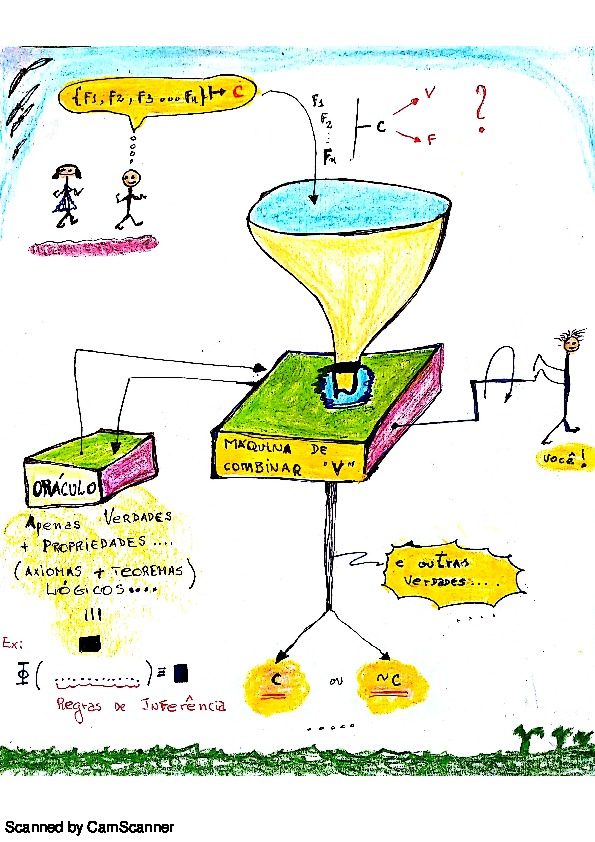 {F1, F2, F3 ooo Fn} ⊢ C
F1
F2
⋮
Fn
C
V
F
?
MÁQUINA DE
COMBINAR "V"
VOCÊ!
ORÁCULO
APENAS VERDADES
+ PROPRIEDADES ....
(AXIOMAS + TEOREMAS)
LÓGICOS....
!!!
e outras
verdades....
.....
Ex:
Φ(..............) ≡ ■
Regras de Inferência
C ou ~C
.....
Scanned by CamScanner